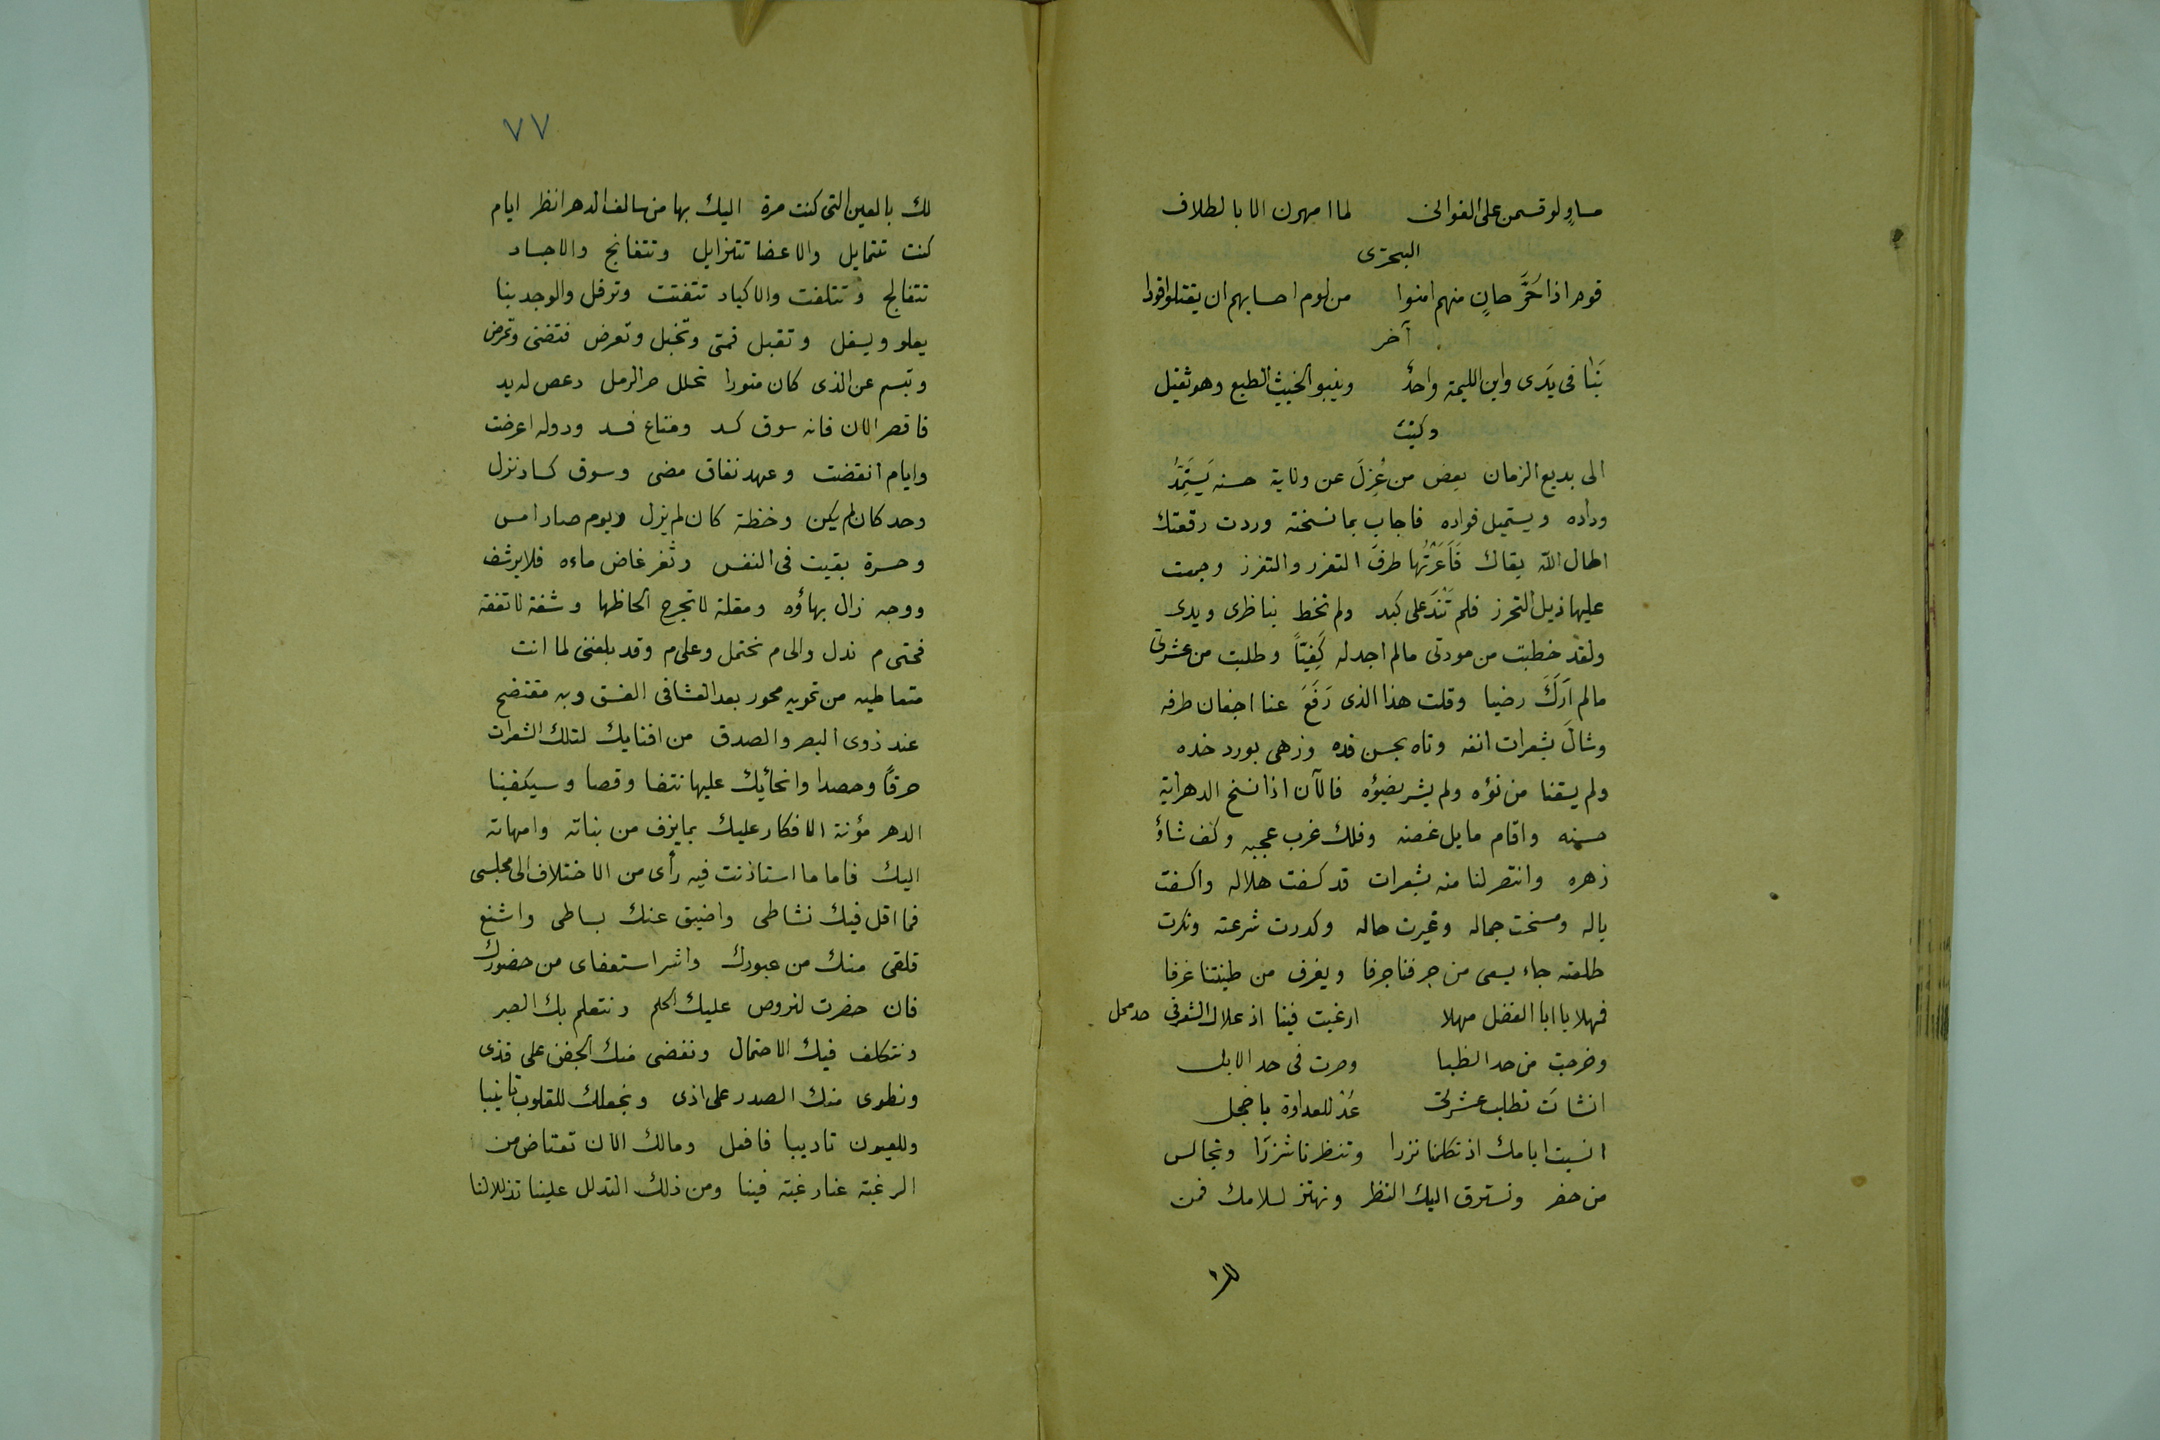 مساوٍ لو قسمن على الغوانى لما امهرن الا بالطلاق
البحترى
قوم اذا حَزَّ جانٍ منهم امنوا من لوم احسابهم ان يقتلوا قودا
آخر
نَبَا فى يَدى وابن اللئيمة واحدٌ وينبو الخبيث الطبع وهو ثقيل
وكتبت
الى بديع الزمان بعض من عُزِلَ عن ولاية حسنه يَستَمِدُّ
وداده ويستميل فواده فاجاب بما نسخته وردت رقعتك
اطال الله بقاك فَاَعَرْتُها طرفَ التعزز والتقزز وجمعت
عليها ذيل التحرز فلم تَنْدَ على كبد ولم تخط بناظرى ويدى
ولقد خطبت من مودتى مالم اجدلك كَفِيّاً وطلبت من عشرتى
مالم اَرَكَ رضيا وقلت هذا الذى رَفَعَ عنا اجفان طرفه
وشالَ بشعرات انفه وتاه بحسن قده وزهى بورد خده
ولم يسقنا من نؤه ولم يشر بضيؤه فالآن اذا نسخ الدهر اية
حسنه واقام مايل غصنه وفلك غرب عجبه وكف شاؤ
زهره وانتصر لنا منه بشعرات قد كسفت هلاله واكسفت
باله ومسخت جماله وغيرت حاله وكدرت شرعته ونكرت
طلعته جاء يسعى من جرفنا جرفا ويغرف من طينتنا غرفا
فهلا يا ابا الفضل مهلا ارغبت فينا اذ علاك الشعر فى حد محل
وخرجت من حد الظبا وصرت فى حد الابل
انشاتَ تطلب عشرتى عُدْ للعداوة يا خجل
انسيت ايامك اذ تكلمنا نزرا وتنظرنا شزرًا وتجالس
من حضر ونسترق اليك النظر ونهتز لسلامك فمن
لك
٧٧
لك بالعين التى كنت مرة اليك بها من سالف الدهر انظر ايام
كنت تتمايل والاعضا تتزايل وتتغانج والاجساد
تتفالج وتتلفت والاكباد تتفتت وترفل والوجد بنا
يعلو ويسفل وتقبل فمتى وتخبل وتعرض فتضنى وتمرض
وتبسم عن الذى كان منورا تخلل حر الرمل دعص له يد
فاقصر الان فانه سوق كسد ومتاع فسد ودوله اعرضت
وايام انقضت وعهد نفاق مضى وسوق كساد نزل
وحد كان لم يكن وخظة كان لم يزل ويوم صار امس
وحسرة بقيت فى النفس وثغر غاض ماءه فلا يرشف
ووجه زال بهاؤه ومقلة لا تجرح الحاظها وشفة لا تفقه
فحتى م ندل والى م نحتمل وعلى م وقد بلغنى لما انت
متعاطيه من تمويه محور بعد العشا فى الغسق وبه مفتضح
عند ذوى البصر والصدق من افنايك لتلك الشعرات
حرقًا وحصدا وانحاؤيك عليها نتفا وقصا وسيكفينا
الدهر مؤنة الافكار عليك بما يزف من بناته وامهاته
اليك فاما ما استاذنت فيه رأى من الاختلاف الى مجلسى
فما اقل فيك نشاطى واضيق عنك بساطى واشنع
قلقى منك من عبورك واشر استعفاى من حضورك
فان حضرت لنروض عليك الحلم ونتعلم بك الصبر
ونتكلف فيك الاحتمال ونغضى منك الجفن على قذى
ونطوى منك الصدر على اذى ونجعلك للقلوب تانيبا
وللعيون تاديبا فافعل ومالك الان تعتاض من
الرغبة عنا رغبة فينا ومن ذلك التدلل علينا تذللا لنا